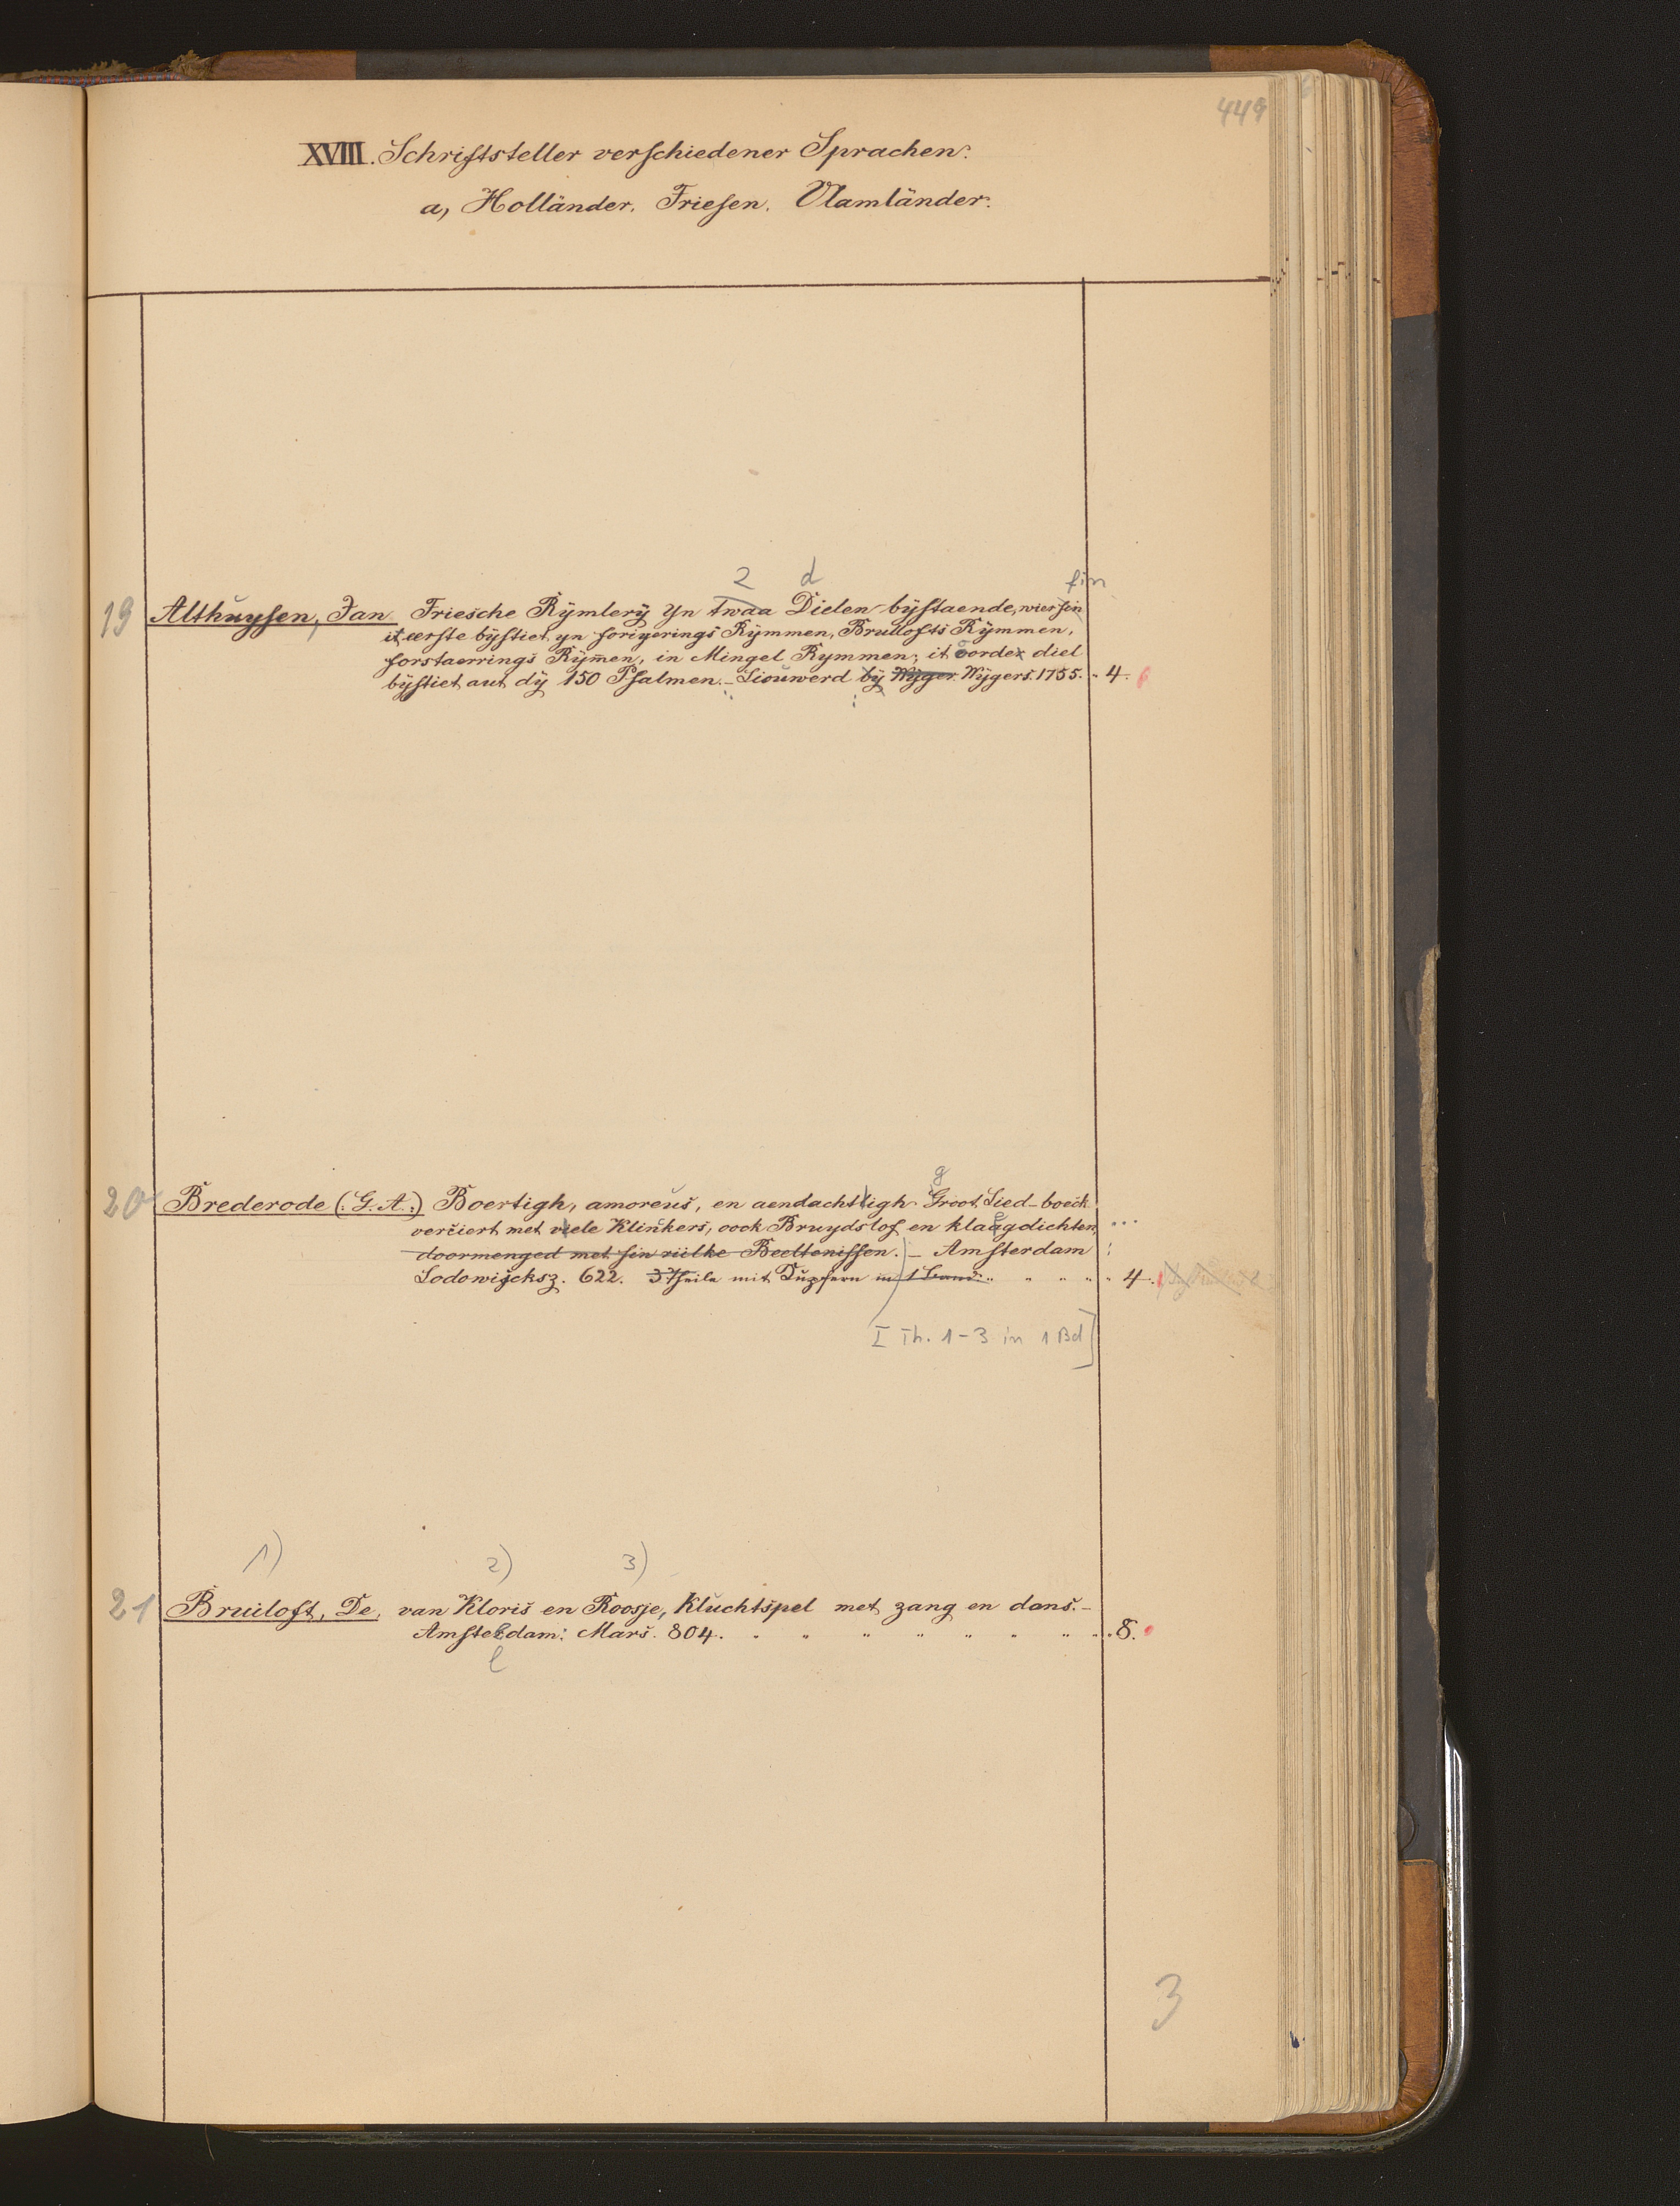 449
XVIII. Schriftsteller verschiedener Sprachen.
a, Holländer. Friesen. Vlamländer.
2 d fin
19 Althuysen, Jan. Friesche Rÿmlerÿ Yn twaa Dielen bÿstaende, wier fin
it eerste bÿstiet yn foriyerings Rÿmmen, Brullofts Rÿmmen,
forstaerrings Rÿm̄en, in Mingel Rymmen; it oorde diel
bÿstiet aut dÿ 150 Psalmen. – Liouwerd bÿ Wÿger. Wÿgers. 1755. 4.
g
20 Brederode (: G. A :) Boertigh, amoreus, en aendachtigh Groot Lied-boeck
verciert met viele Klinkers, oock Bruydslof en klaagdichten,
doormenged met sin riilke Beeltenissen. – Amsterdam
Lodowijcksz. 622. 3 Theile mit Kupfern in 1 Band. 4.
I Th. 1-3 in 1 Bd]
1) 2) 3)
21 Bruiloft, De, van Kloris en Roosje, Kluchtspel met zang en dans. –
Amsteldam: Mars. 804. 8.
l
3